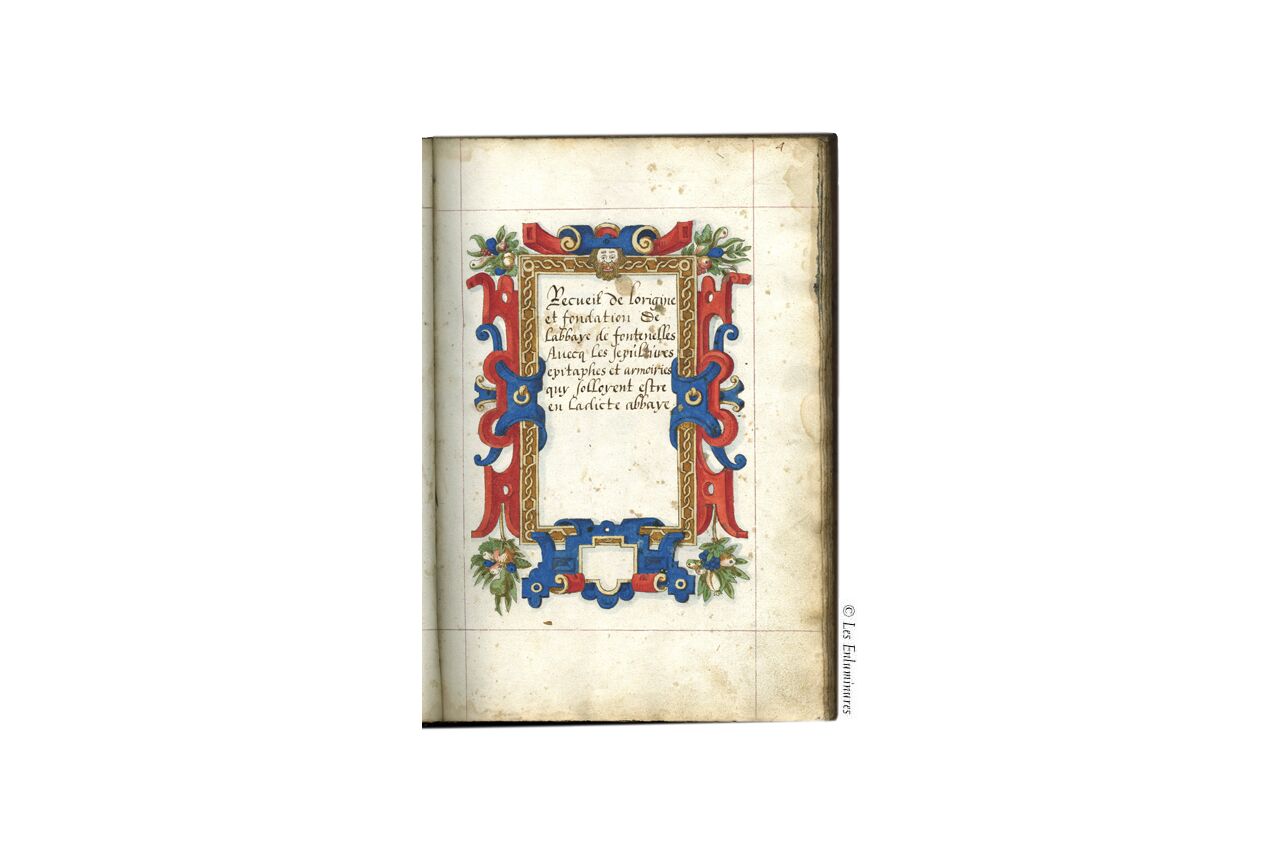 4
Recueil de lorigine
et fondation de
Labbaye de fontenelles
Avecq les sepultures
epitaphes et armoiries
quy solloyent estre
en Ladicte abbaye
© Les Enluminures